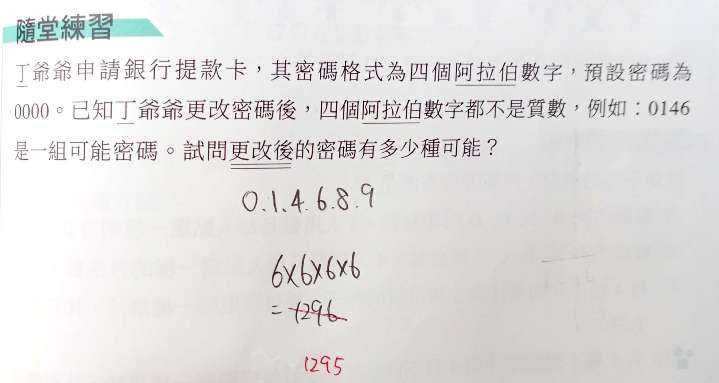 隨堂練習
丁爺爺申請銀行提款卡，其密碼格式為四個阿拉伯數字，預設密碼為
0000。已知丁爺爺更改密碼後，四個阿拉伯數字都不是質數，例如：0146
是一組可能密碼。試問更改後的密碼有多少種可能？
0.1.4.6.8.9
6×6×6×6
= 1296
1295